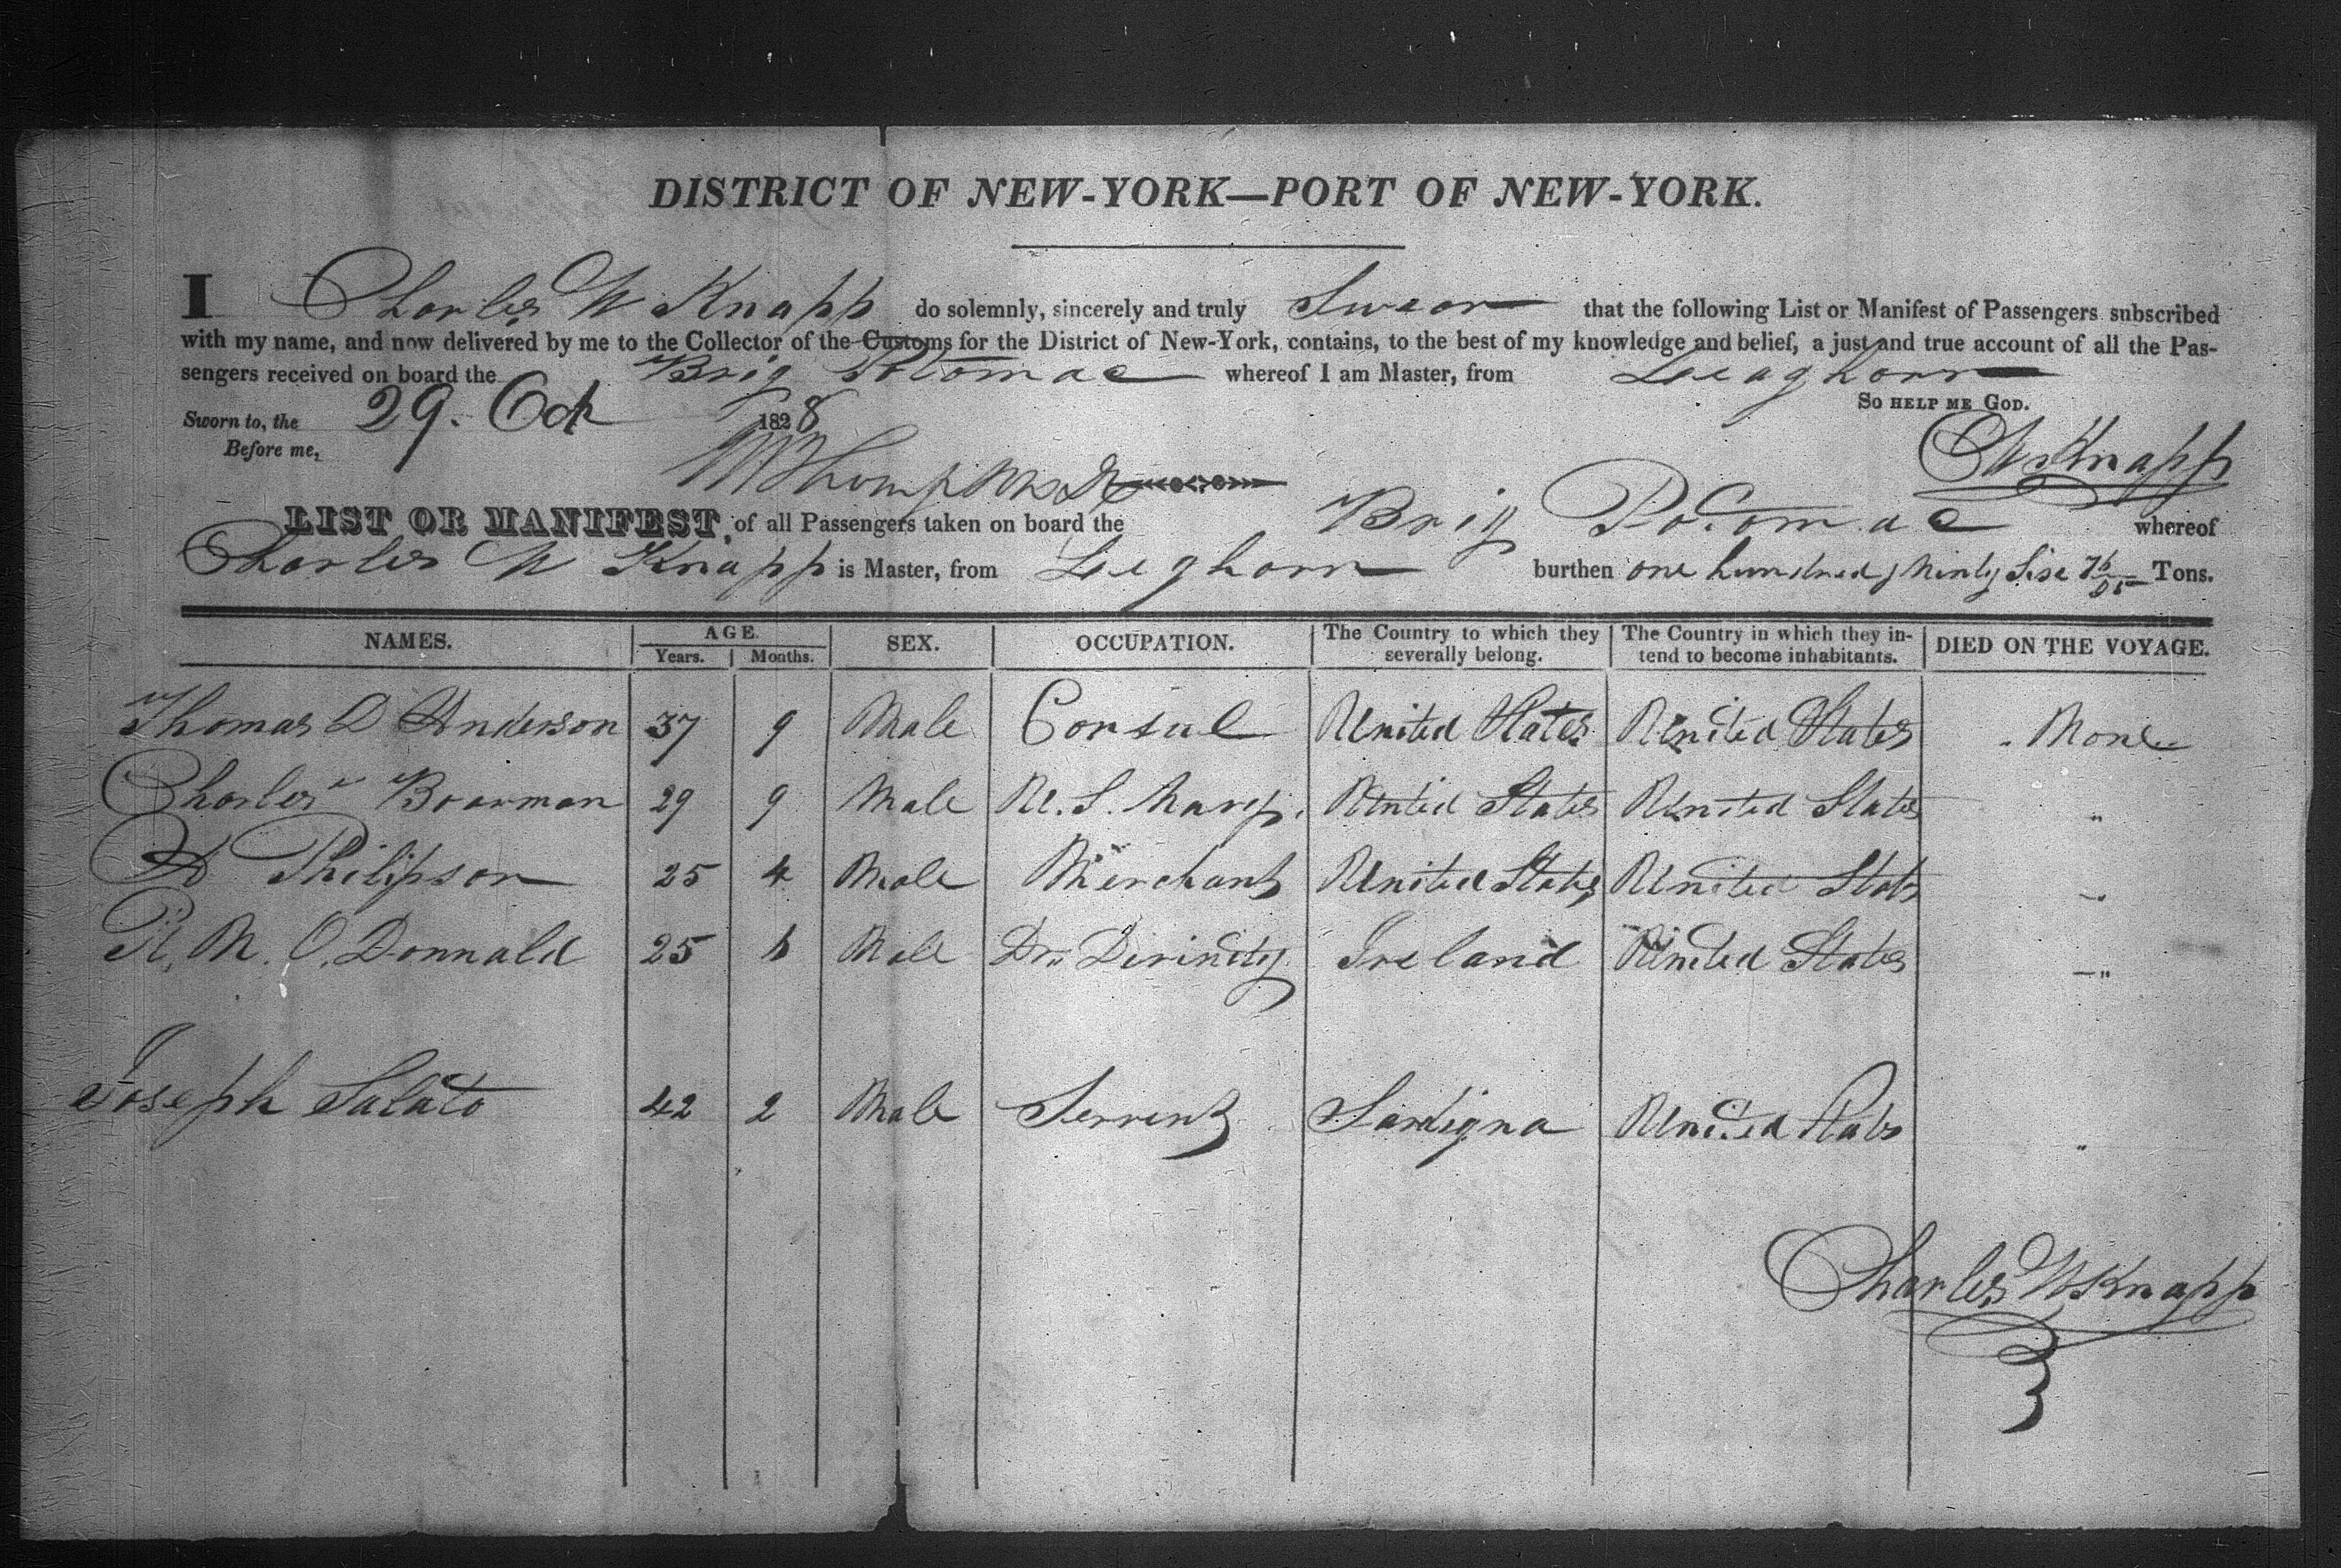 DISTRICT OF NEW-YORK—PORT OF NEW-YORK.
I Charles W Knapp do solemnly, sincerely and truly Swear that the following List or Manifest of Passengers subscribed
with my name, and now delivered by me to the Collector of the Customs for the District of New-York, contains, to the best of my knowledge and belief, a just and true account of all the Pas-
sengers received on board the Brig Potomac whereof I am Master, from Leaghorn
So HELP ME GOD.
Sworn to, the 29. Oct 1828
Before me,
CW Knapp
LIST OR MANIFEST, of all Passengers taken on board the Brig Potomac whereof
Charles W Knapp is Master, from Leeghorn burthen one hundred, Ninty Six 76/95 Tons.
NAMES. AGE. SEX. OCCUPATION. The Country to which they severally belong. The Country in which they in- tend to become inhabitants. DIED ON THE VOYAGE.
Years. Months.
Thomas D Anderson 37 9 Male Consul United States United States None
Charles Boarman 29 9 Male U. S. Navy. United States United States "
A Philipson 25 4 Male Merchant United States United States "
R. M. O. Donnald 25 6 Male Dr. Divinity Ireland United States "
Joseph Salato 42 2 Male Servent Sardigna United States "
Charles W Knapp